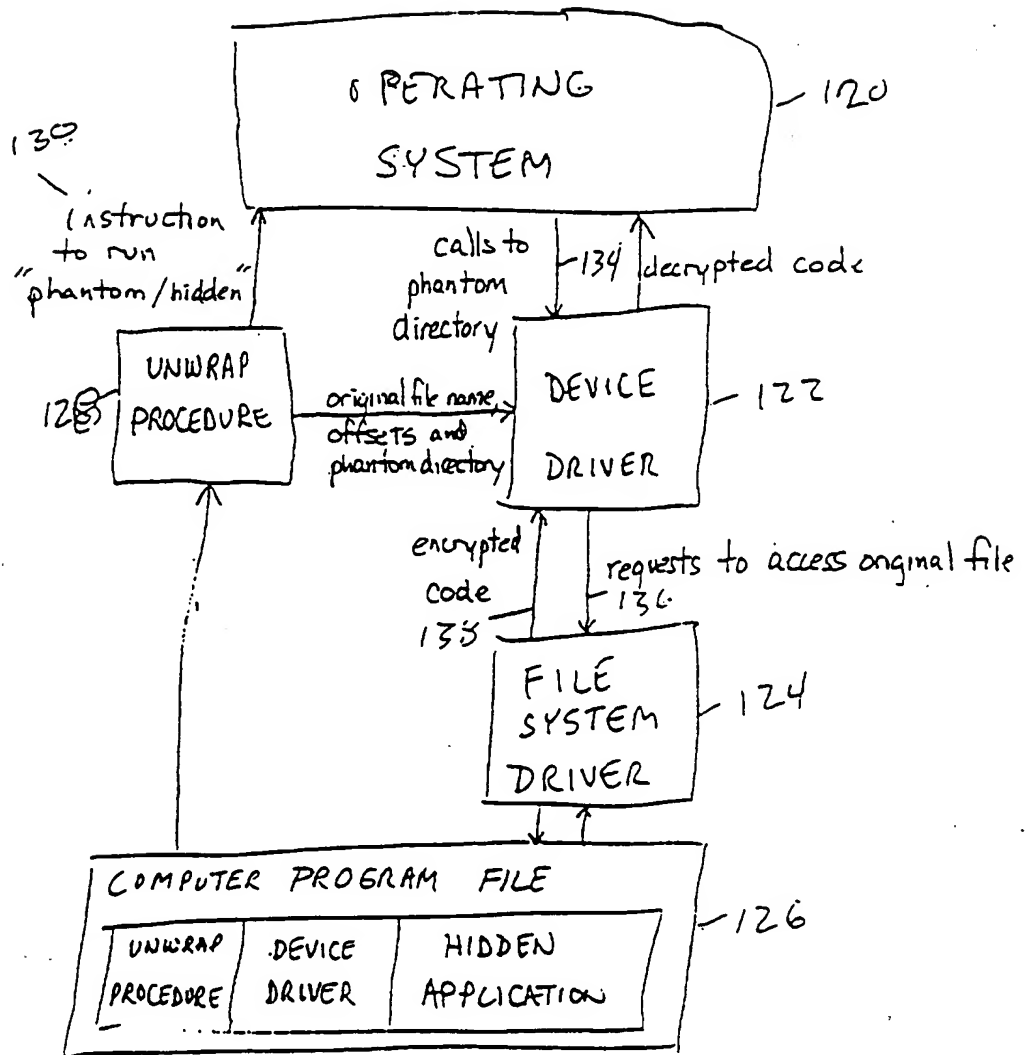 OPERATING
SYSTEM
120
130
instruction
to run
"phantom/hidden"
calls to
phantom
directory
134
decrypted code
UNWRAP
PROCEDURE
128
original file name,
offsets and
phantom directory
DEVICE
DRIVER
122
encrypted
code
138
requests to access original file
136
FILE
SYSTEM
DRIVER
124
COMPUTER PROGRAM FILE
UNWRAP
PROCEDURE
DEVICE
DRIVER
HIDDEN
APPLICATION
126